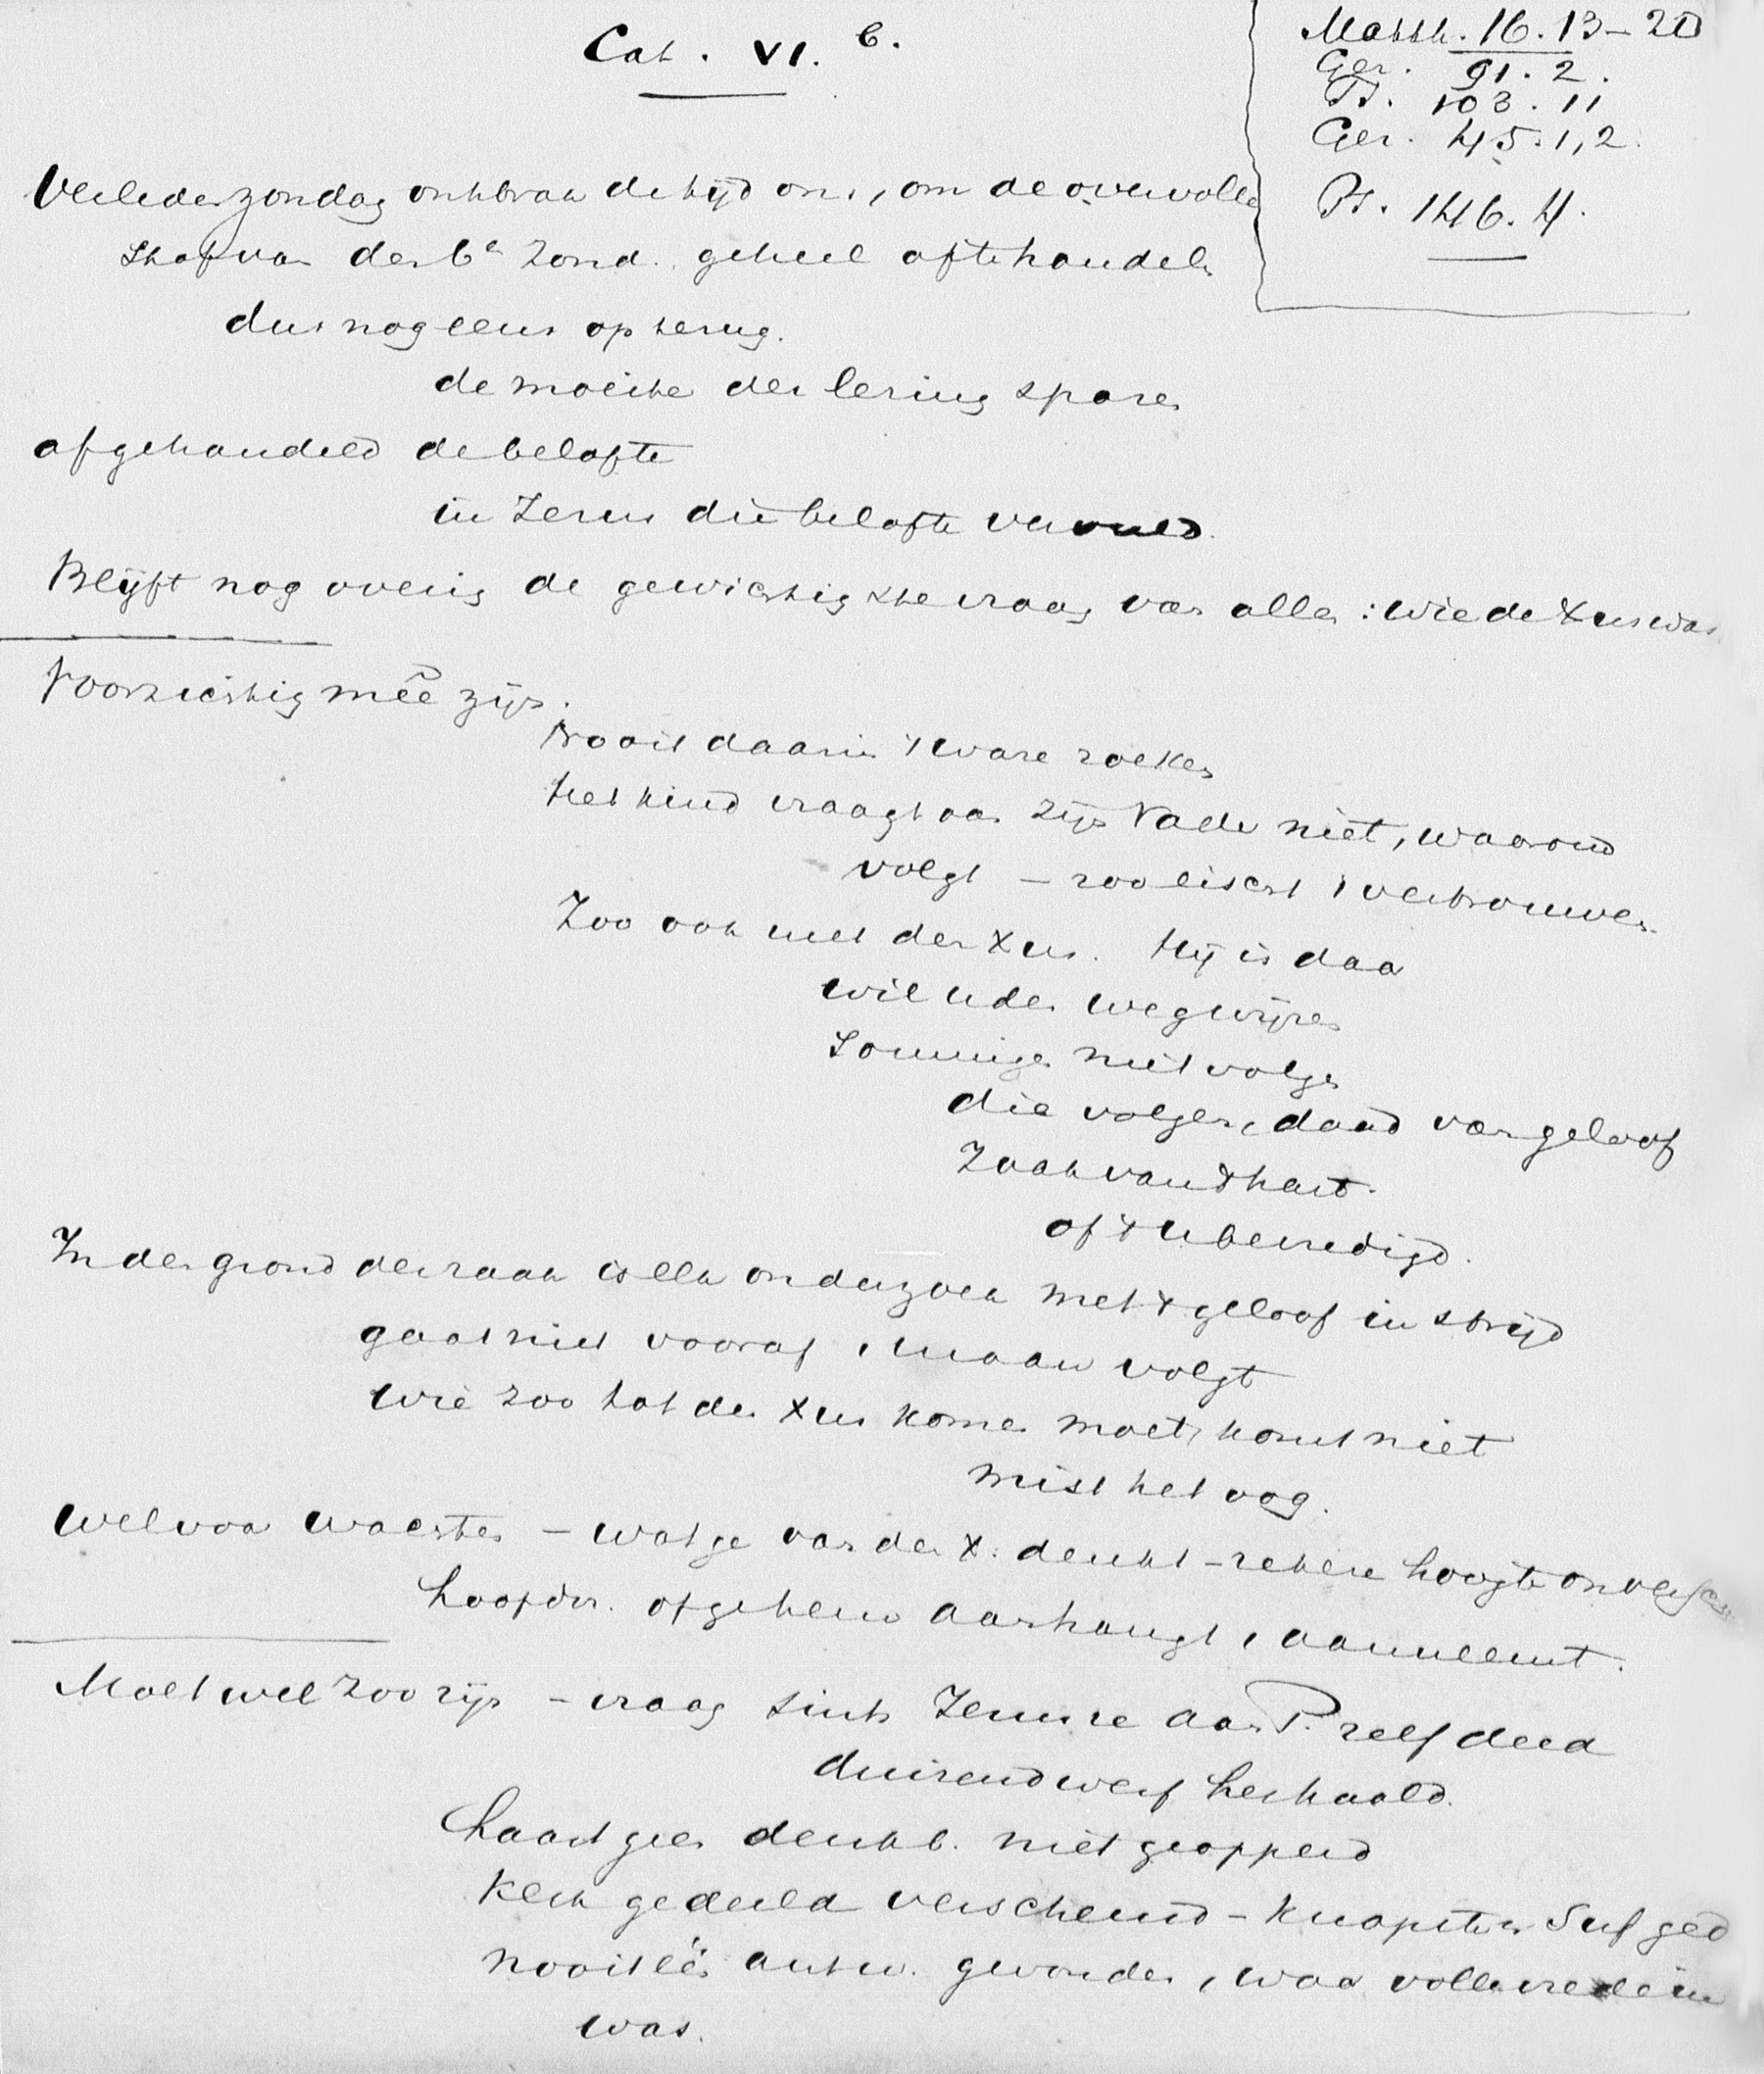 Cat. VI. b.
Matth. 16. 13–20
Gez. 91. 2.
Ps. 103. 11
Gez. 45. 1, 2.
Ps. 146. 4.
Verleden zondag ontbrak de tijd ons, om de overvolle
stof van den 6e Zond. geheel af te handelen
dus nog eens op terug.
de moeite der lezing sparen
afgehandeld de belofte
in Jezus die belofte vervuld.
Blijft nog overig de gewichtigste vraag van allen: wie de Xus was
Voorzichtig meê zijn.
Nooit daarin 't ware zoeken
het kind vraagt aan zijn Vader niet, waarom
volgt – zoo eischt 't vertrouwen.
Zoo ook met den Xus. Hij is daar
wil u den weg wijzen
Sommigen niet volgen
die volgen, daad van geloof
Zaak van 't hart.
of 't u bevredigd.
In den grond der zaak is elk onderzoek met 't geloof in strijd
gaat niet vooraf, maar volgt
wie zoo tot den Xus komen moet, komt niet
mist het oog.
Wel voor wachten – wat ge van den X. denkt – zekere hoogte onversch
hoofdz. of ge hem aanhangt, aanneemt.
Moet wel zoo zijn – vraag sints Jezus ze aan P. zelf deed
duizendwerf herhaald.
haast geen denkb. niet geopperd
Kerk gedeeld verscheurd – knapsten suf ged
nooit één antw. gevonden, waar volle vrede in
was.